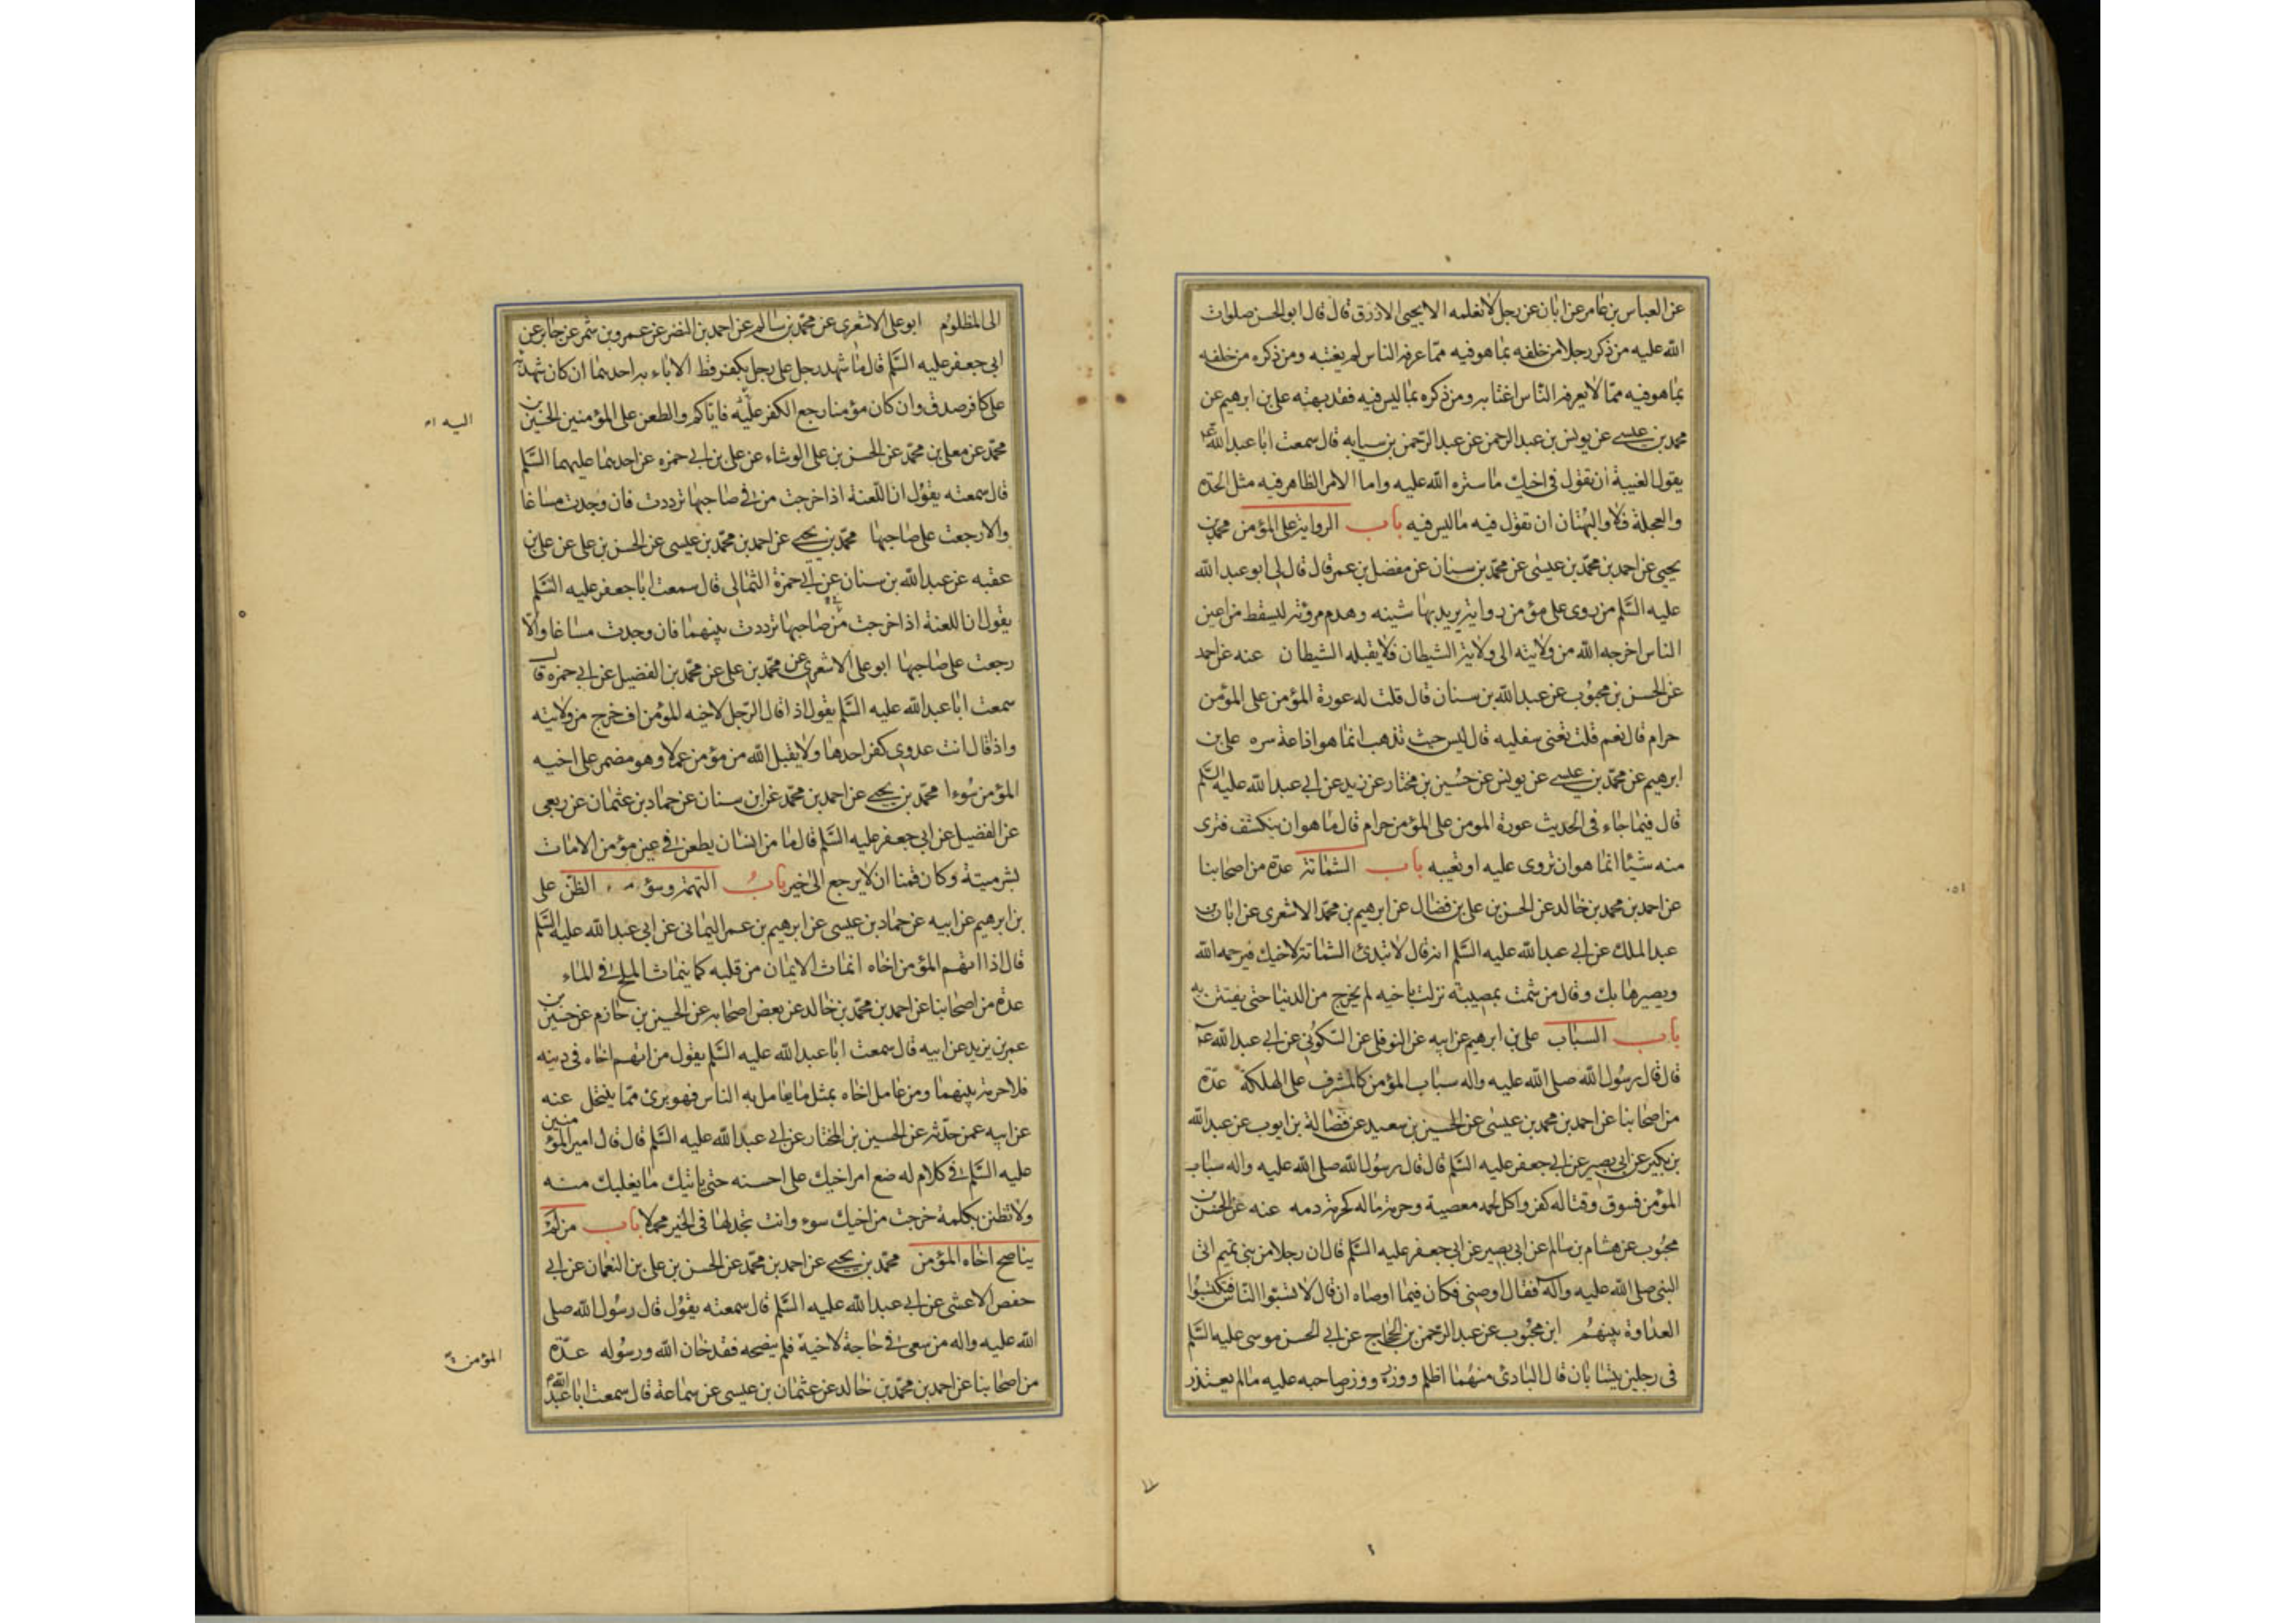 عن العباس بن عامر عن ابان عن رجل لا نعلمه الا يحيى الازرق قال قال ابو الحسن صلوات
الله عليه من ذكر رجلا من خلفه بما هو فيه مما عرفه الناس لم يغتبه ومن ذكره من خلفه
بما هو فيه مما لا يعرفه الناس اغتابه ومن ذكره بما ليس فيه فقد بهته على بن ابرهيم عن
محمد بن عيسى عن يونس بن عبد الرحمن عن عبد الرحمن بن سيابه قال سمعت ابا عبد الله ع
يقول الغيبة ان تقول فى اخيك ما ستره الله عليه واما الامر الظاهر فيه مثل الحدة
والعجلة فلا والبهتان ان تقول فيه ما ليس فيه باب الرواية على المؤمن محمد بن
يحيى عن احمد بن محمد بن عيسى عن محمد بن سنان عن مفضل بن عمر قال قال لى ابو عبد الله
عليه السلم من روى على مؤمن رواية يريد بها شينه وهدم مروته ليسقط من اعين
الناس اخرجه الله من ولايته الى ولاية الشيطان فلا يقبله الشيطان عنه عن احمد
عن الحسن بن محبوب عن عبد الله بن سنان قال قلت له عورة المؤمن على المؤمن
حرام قال نعم قلت تعنى سفليه قال ليس حيث تذهب انما هو اذاعة سره على بن
ابرهيم عن محمد بن عيسى عن يونس عن حسين بن مختار عن زيد عن ابى عبد الله عليه السلم
قال فيما جاء فى الحديث عورة المومن على المؤمن حرام قال ما هو ان ينكشف فترى
منه شيئا انما هو ان تروى عليه او تعيبه باب الشماتة عدة من اصحابنا
عن احمد بن محمد بن خالد عن الحسن بن على بن فضال عن ابرهيم بن محمد الاشعرى عن ابان بن
عبد الملك عن ابى عبد الله عليه السلم انه قال لا تبدئ الشماتة لاخيك فيرحمه الله
ويصيرها بك وقال من شمت بمصيبة نزلت باخيه لم يخرج من الدنيا حتى يفتتن به
باب السباب على بن ابرهيم عن ابيه عن النوفلى عن السكونى عن ابى عبد الله ع
قال قال رسول الله صلى الله عليه واله سباب المؤمن كالمشرف على الهلكة عدة
من اصحابنا عن احمد بن محمد بن عيسى عن الحسين بن سعيد عن فضالة بن ايوب عن عبد الله
بن بكير عن ابى بصير عن ابى جعفر عليه السلم قال قال رسول الله صلى الله عليه واله سباب
المؤمن فسوق وقتاله كفر واكل لحمه معصية وحرمة ماله كحرمة دمه عنه عن الحسن بن
محبوب عن هشام بن سالم عن ابى بصير عن ابى جعفر عليه السلم قال ان رجلا من بنى تميم اتى
النبى صلى الله عليه وآله فقال اوصنى فكان فيما اوصاه ان قال لا تسبوا الناس فتكتسبوا
العداوة بينهم ابن محبوب عن عبد الرحمن بن الحجاج عن ابى الحسن موسى عليه السلم
فى رجلين يتسابان قال البادى منهما اظلم ووزره ووزر صاحبه عليه ما لم يعتذر
الى المظلوم ابو على الاشعرى عن محمد بن سالم عن احمد بن النضر عن عمرو بن شمر عن جابر عن
ابى جعفر عليه السلم قال ما شهد رجل على رجل بكفر قط الا باء به احدهما ان كان شهد به
على كافر صدق وان كان مؤمنا رجع الكفر عليه فاياكم والطعن على المؤمنين الحسين بن
اليه
محمد عن معلى بن محمد عن الحسن بن على الوشاء عن على بن ابى حمزه عن احدهما عليهما السلم
قال سمعته يقول ان اللعنة اذا خرجت من فى صاحبها ترددت فان وجدت مساغا
والا رجعت على صاحبها محمد بن يحيى عن احمد بن محمد بن عيسى عن الحسن بن على عن على بن
عقبه عن عبد الله بن سنان عن ابى حمزة الثمالى قال سمعت ابا جعفر عليه السلم
يقول ان اللعنة اذا خرجت من صاحبها ترددت بينهما فان وجدت مساغا والا
رجعت على صاحبها ابو على الاشعرى عن محمد بن على عن محمد بن الفضيل عن ابى حمزه قال
سمعت ابا عبد الله عليه السلم يقول اذا قال الرجل لاخيه المؤمن اف خرج من ولايته
واذا قال انت عدوى كفر احدهما ولا يقبل الله من مؤمن عملا وهو مضمر على اخيه
المؤمن سوءا محمد بن يحيى عن احمد بن محمد عن ابن سنان عن حماد بن عثمان عن ربعى
عن الفضيل عن ابى جعفر عليه السلم قال ما من انسان يطعن فى عين مؤمن الا مات
بشر ميتة وكان قمنا ان لا يرجع الى خير باب التهمة وسؤ الظن على
بن ابرهيم عن ابيه عن حماد بن عيسى عن ابرهيم بن عمر اليمانى عن ابى عبد الله عليه السلم
قال اذا اتهم المؤمن اخاه انماث الايمان من قلبه كما ينماث الملح فى الماء
عدة من اصحابنا عن احمد بن محمد بن خالد عن بعض اصحابه عن الحسين بن حازم عن حسين بن
عمر بن يزيد عن ابيه قال سمعت ابا عبد الله عليه السلم يقول من اتهم اخاه فى دينه
فلا حرمة بينهما ومن عامل اخاه بمثل ما يعامل به الناس فهو برئ مما ينتحل عنه
عن ابيه عمن حدثه عن الحسين بن المختار عن ابى عبد الله عليه السلم قال قال امير المؤمنين
عليه السلم فى كلام له ضع امر اخيك على احسنه حتى ياتيك ما يغلبك منه
ولا تظنن بكلمة خرجت من اخيك سوء وانت تجد لها فى الخير محملا باب من لم
يناصح اخاه المؤمن محمد بن يحيى عن احمد بن محمد عن الحسن بن على بن النعمان عن ابى
حفص الاعشى عن ابى عبد الله عليه السلم قال سمعته يقول قال رسول الله صلى
الله عليه واله من سعى فى حاجة لاخيه فلم ينصحه فقد خان الله ورسوله عدة
المؤمن
من اصحابنا عن احمد بن محمد بن خالد عن عثمان بن عيسى عن سماعة قال سمعت ابا عبد الله